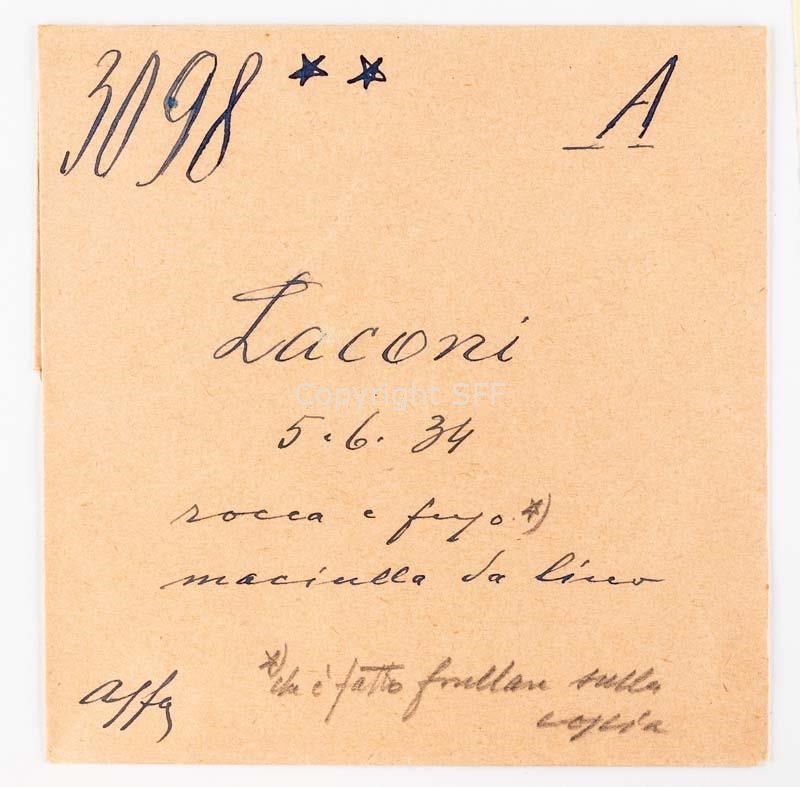 3098 ** A
Laconi
Copyright SFF
5.6.34
rocca e fuso *)
maciulla da lino
*) che è fatto frullare sulla
coscia